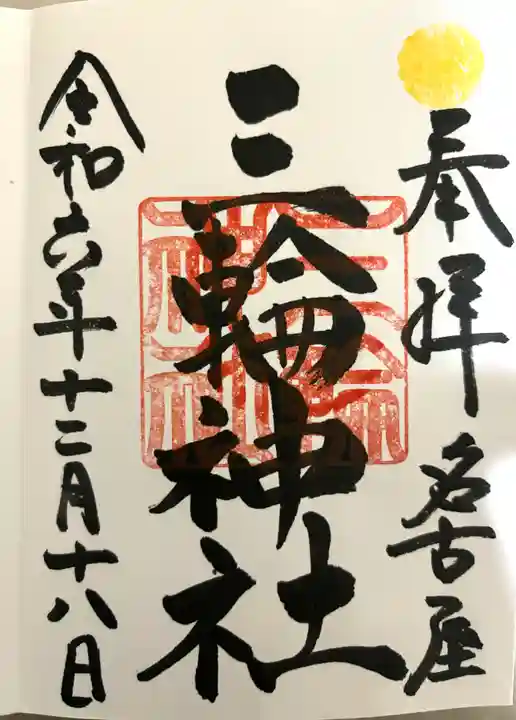 奉拝 名古屋
三輪神社
令和六年十二月十八日